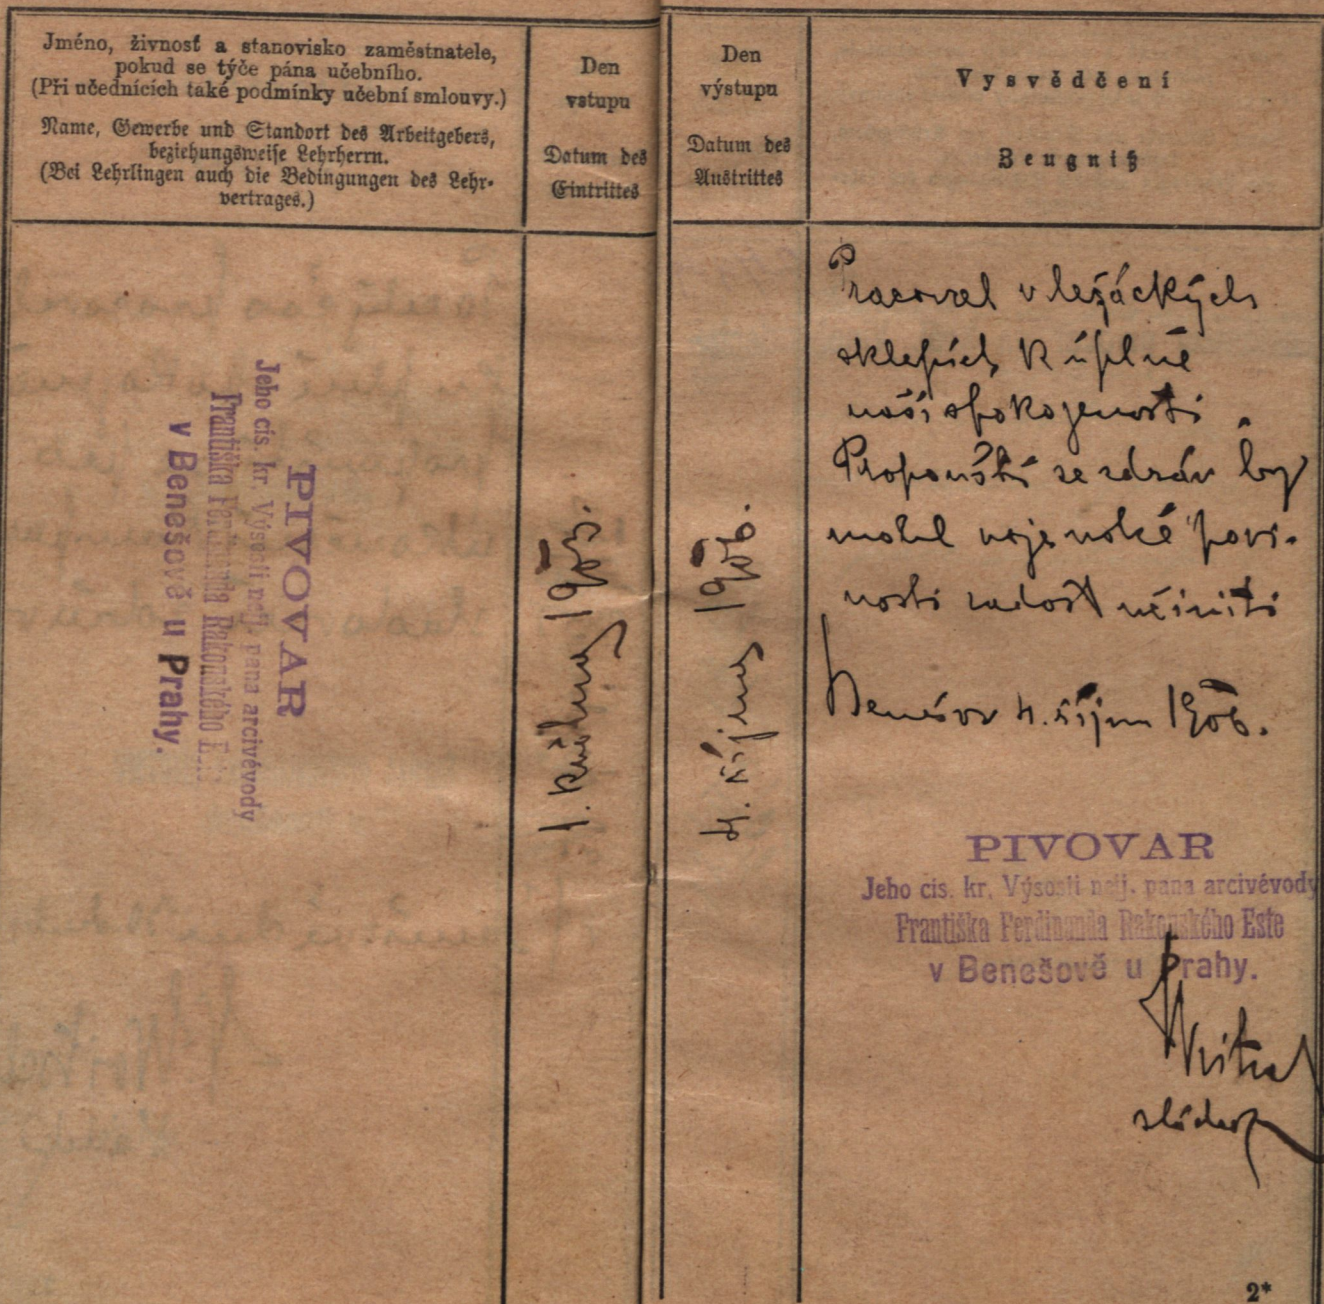 Jméno, živnosť a stanovisko zaměstnatele,
pokud se týče pána učebního.
(Při učednících také podmínky učební smlouvy.)
Name, Gewerbe und Standort des Arbeitgebers,
beziehungsweise Lehrherrn.
(Bei Lehrlingen auch die Bedingungen des Lehr-
vertrages.)
Den
vstupu
Datum des
Eintrittes
Den
výstupu
Datum des
Austrittes
Vysvědčení
Zeugniß
PIVOVAR
Jeho cis. kr. Výsosti nejj. pana arcivévody
Františka Ferdinanda Rakouského Este
v Benešově u Prahy.
1. května 1905.
4. října 1906.
Pracoval v ležáckých
sklepích k úplné
naší spokojenosti.
Propouští se zdráv by
mohl vojenské povi-
nosti zadost učiniti
Benešov 4. říjen 1906.
PIVOVAR
Jeho cis. kr. Výsosti nejj. pana arcivévody
Františka Ferdinanda Rakouského Este
v Benešově u Prahy.
sládek
2*